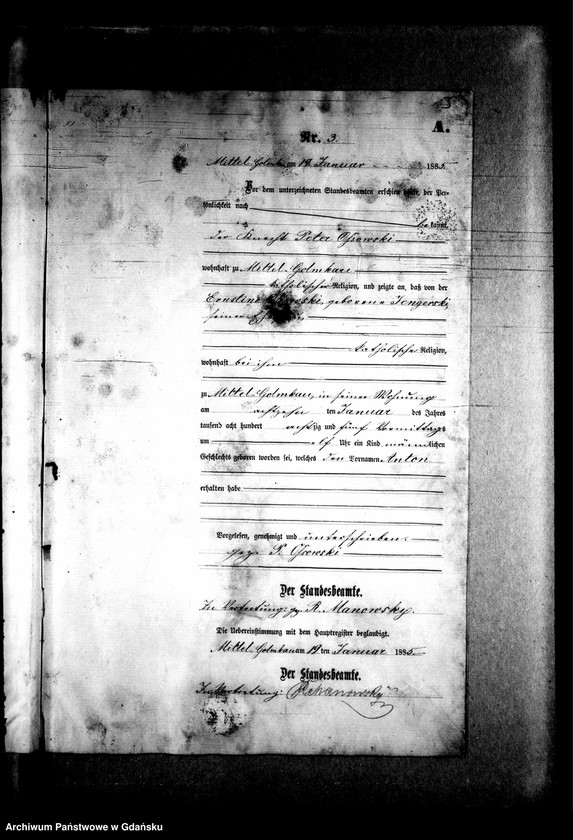 A.
Nr. 3.
Mittel Golmkau am 19 Januar 1885.
Vor dem unterzeichneten Standesbeamten erschien heute, der Per-
sönlichkeit nach
kannt,
der Knecht Peter Ossowski
wohnhaft zu Mittel Golmkau
katholischer Religion, und zeigte an, daß von der
Ernstine geborene
seiner
katholischer Religion,
wohnhaft bei ihm
zu Mittel-Golmkau, in seiner Wohnung
am achtzehn ten Januar des Jahres
tausend acht hundert achtzig und fünf Vormittags
um elf Uhr ein Kind männlichen
Geschlechts geboren worden sei, welches den Vornamen Anton
erhalten habe
Vorgelesen, genehmigt und unterschrieben.
gez. P. Ossowski
Der Standesbeamte.
In Vertretung: gez. R. Manowsky.
Die Uebereinstimmung mit dem Hauptregister beglaubigt.
Mittel Golmkau am 19 ten Januar 1885.
Der Standesbeamte.
In Vertretung: R Manowsky
Archiwum Państwowe w Gdańsku